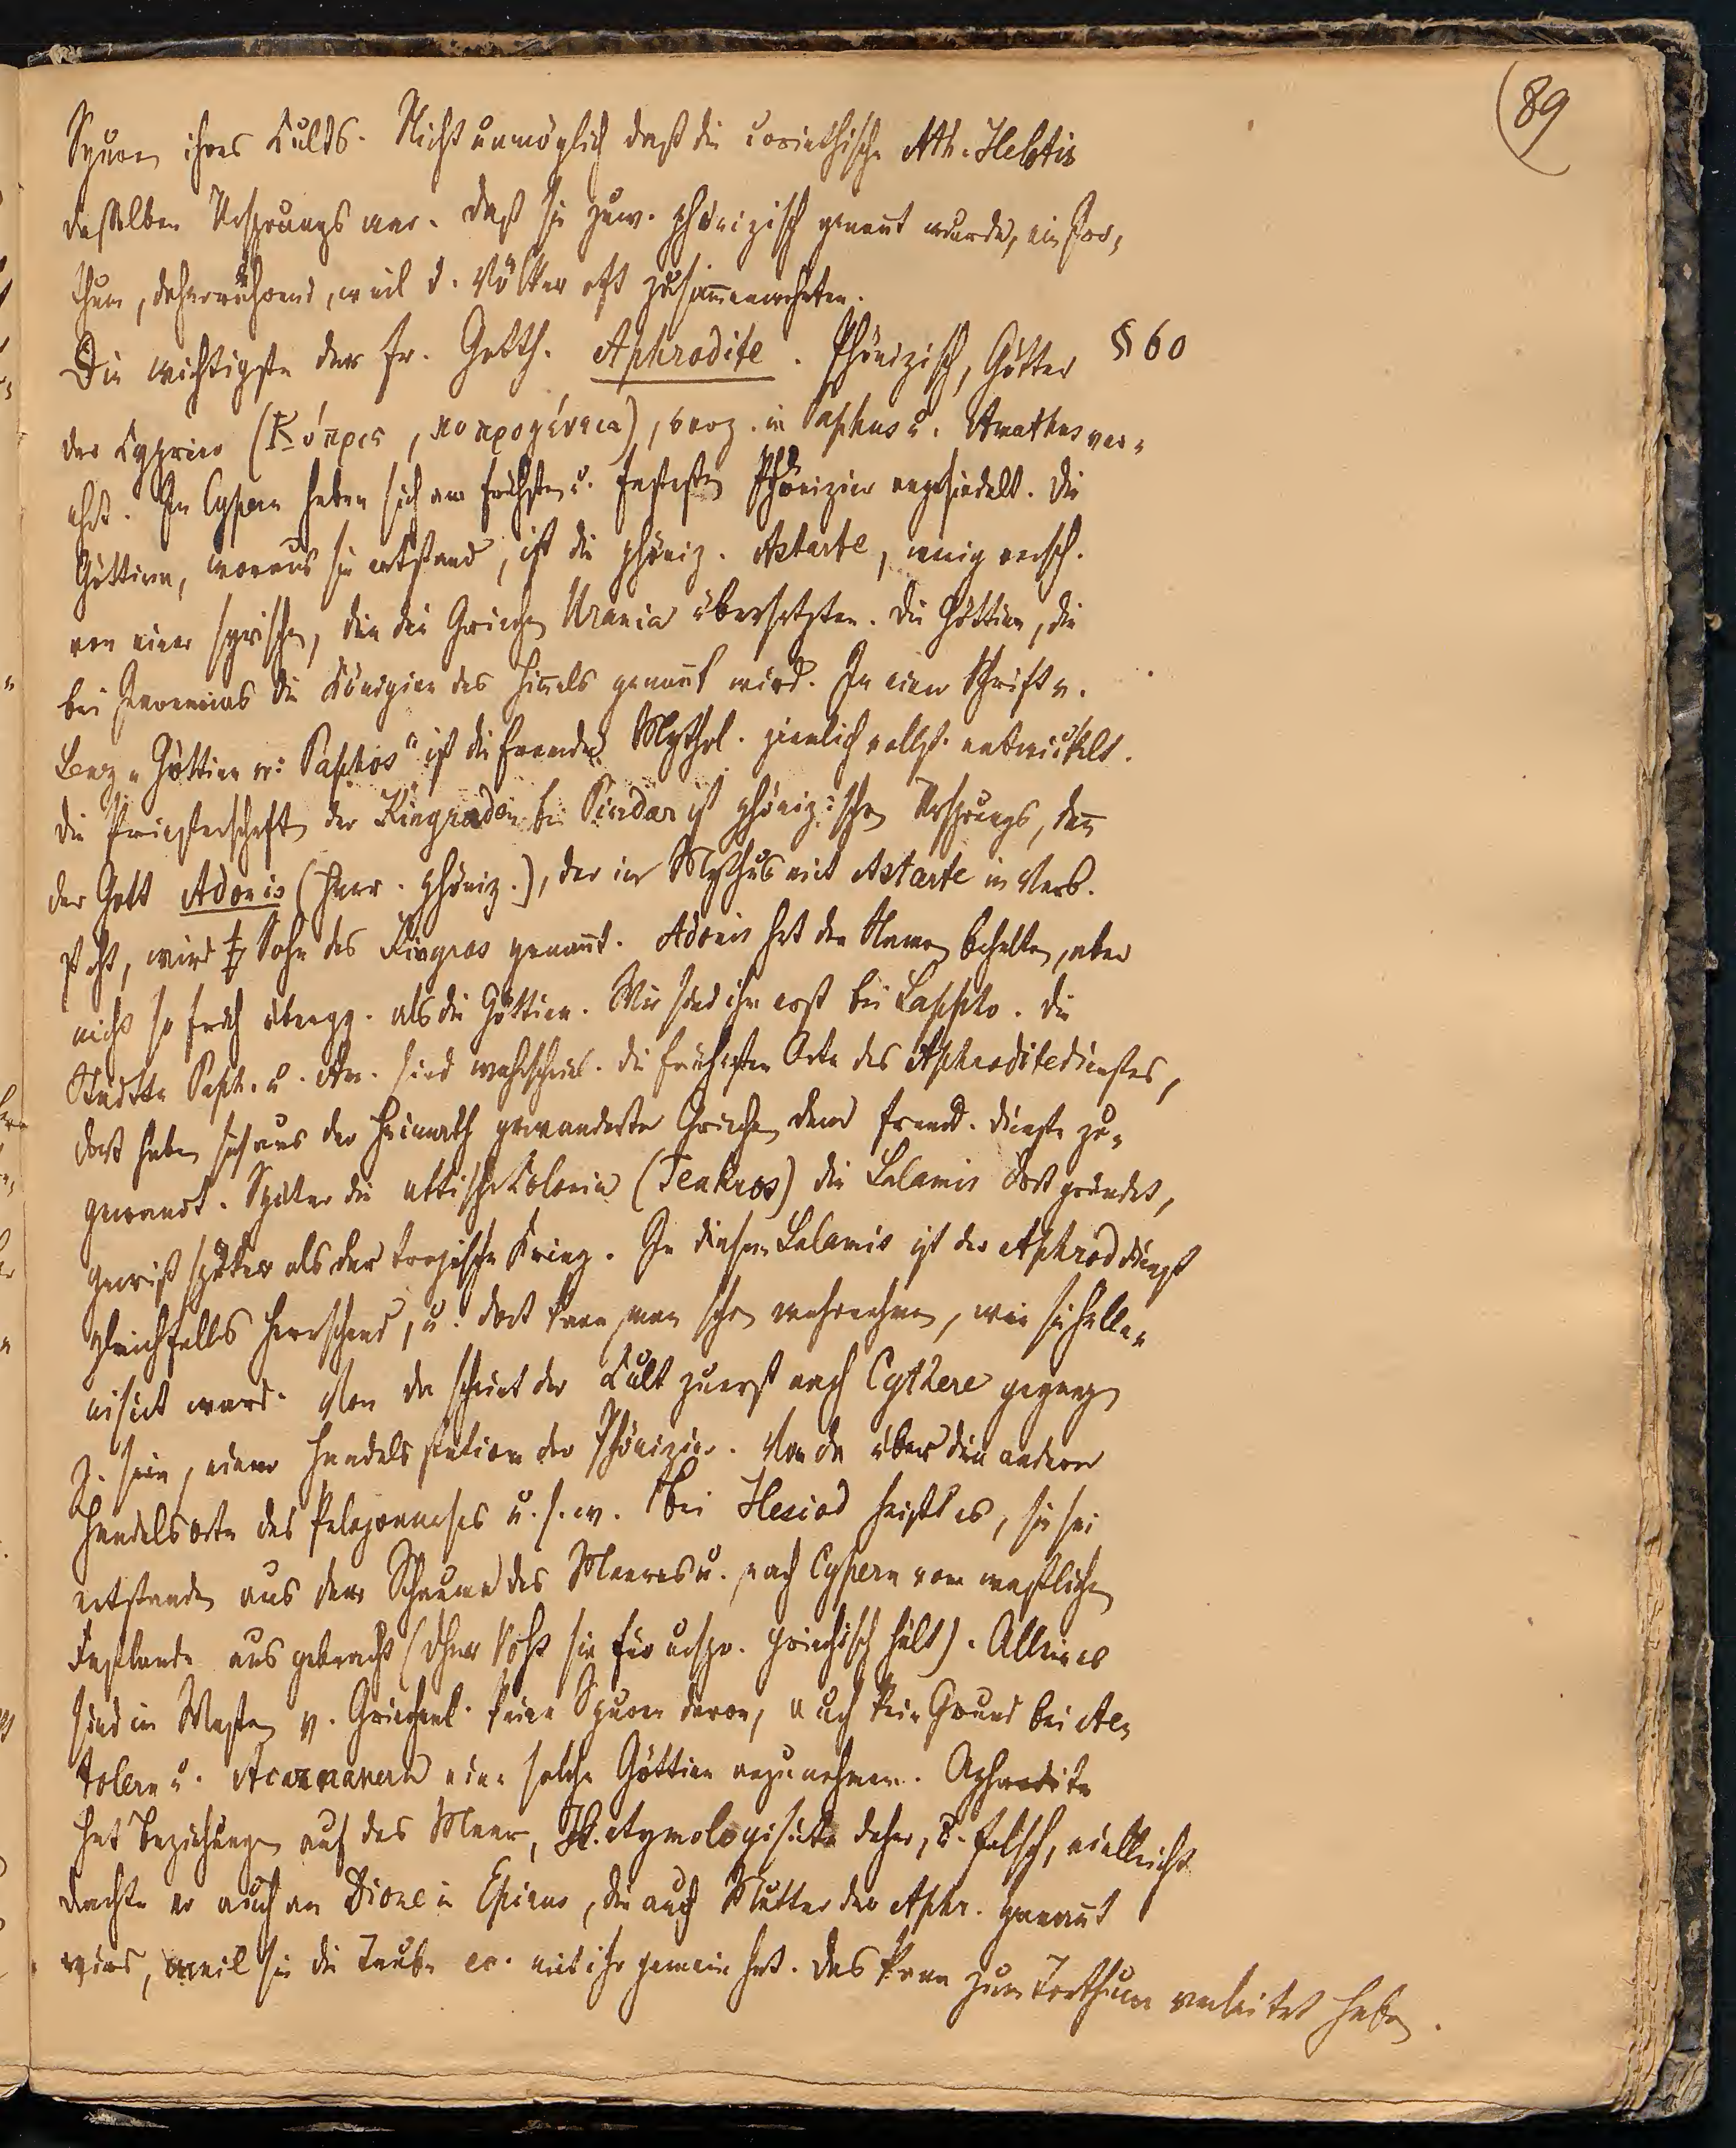 (89
Spuren ihres Cults. Nicht unmöglich daß die corinthische Ath. Hellotis
desselben Ursprungs war. Daß sie zuw. phönizisch genañt wurde, ein Irr-
thum, daherrührend, weil d. Völker oft zusam̄enwohnten.
Die wichtigste der fr. Gotth. Aphrodite. Phönizisch, Götter § 60
der Cyprier (Κύπρις, κυπρογένεια), bes. in Paphus u. Amathus ver-
ehrt. In Cypern haben sich am frühsten u. festesten Phönizier angesiedelt. Die
Göttinn, woraus sie entstand, ist die phöniz. Astarte, wenig versch.
von einer syrischen, die die Griechen Urania übersetzten. Die Göttinn, die
bei Jeremias die Königinn des Him̄els genañt wird. In einer Schrift v.
Lenz „Göttinn v. Paphos" ist die fremde Mythol. ziemlich vollst. entwickelt.
Die Priesterschaft der Kinyraden bei Pindar ist phönizischen Ursprungs, deñ
der Gott Adonis (Herr. phöniz.), der im Mythus mit Astarte in Verb.
steht, wird Sohn des Kinyras genañt. Adonis hat den Namen behalten, aber
nicht so früh übergg. als die Göttinn. Wir find ihn erst bei Sappho. Die
Städte Paph. u. Am. sind wahrscheinl. die frühesten Orte des Aphroditedienstes,
dort haben sich aus der Heimath gewanderte Griechen dem fremd. Dienste zu-
gewandt. Später die attische Colonie (Teukros) die Salamis dort gründet,
gewiß später als der trojische Krieg. In diesem Salamis ist der Aphroddienst
gleichfalls herrschend, u. dort kann man schon wahrnehmen, wie sie helle-
nisirt ward. Von da scheint der Cult zuerst nach Cythere gegangen
z. sein, einer Handelsstation der Phönizier. Von da über die andern
Handelsorte des Peloponneses u. s. w. Bei Hesiod heißt es, sie sei
entstanden aus dem Schaume des Meeres u. nach Cypern vom westlichen
Festlande aus gebracht (Daher Voß sie für urspr. griechisch hält). Allein es
sind im Westen v. Griechenl. keine Spuren davon, auch kein Grund bei Ae-
tolern u. Acarnanern eine solche Göttinn anzunehmen. Aphrodite
hat Beziehungen auf das Meer, H. etymologisirte daher, u. falsch, vielleicht
dachte er auch an Dione in Epirus, die auch Mutter der Aphr. genañt
wird, weil sie die Taube ec. mit ihr gemein hat. Das kann zum Irrthum verleitet haben.